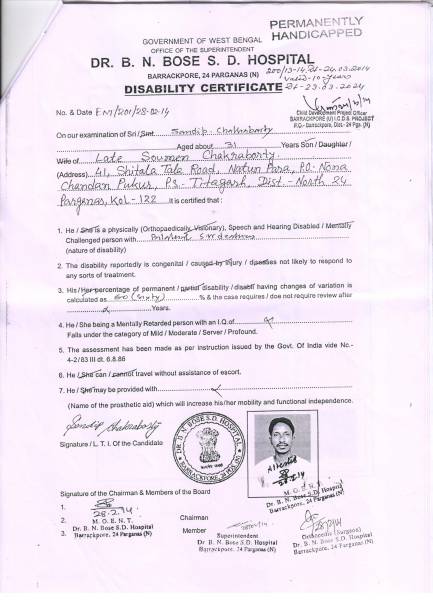 PERMANENTLY
HANDICAPPED
GOVERNMENT OF WEST BENGAL
OFFICE OF THE SUPERINTENDENT
DR. B. N. BOSE S. D. HOSPITAL
BARRACKPORE, 24 PARGANAS (N)
200/13-14. dt-24.03.2014
Valid-10-years
DISABILITY CERTIFICATE
dt-23.03.2024
No. & Date ENT/201/28-02-14
Child Development Project Officer
BARRACKPORE (U) I.C.D.S. PROJECT
P.O.- Barrackpore, Dist.- 24 Pgs. (N)
On our examination of Sri / Smt. Sandip Chakraborty
Aged about 31 Years Son / Daughter /
Wife of Late Soumen Chakraborty.
(Address) 41, Shitala Tala Road, Natun Para, P.O- Nona
Chandan Pukur, P.S- Titagarh, Dist- North 24
Parganas, Kol-122 It is certified that :
1. He / She is a physically (Orthopaedically, Visionary), Speech and Hearing Disabled / Mentally
Challenged person with
(nature of disability)
2. The disability reportedly is congenital / caused by injury / diseases not likely to respond to
any sorts of treatment.
3. His / Her percentage of permanent / partial disability / disabll having changes of variation is
calculated as 60 (sixty) % & the case requires / do not require review after
Years.
4. He / She being a Mentally Retarded person with an I.Q. of
Falls under the category of Mild / Moderate / Server / Profound.
5. The assessment has been made as per instruction issued by the Govt. Of India vide No.-
4-2/83 III dt. 6.8.86
6. He / She can / cannot travel without assistance of escort.
7. He / She may be provided with
(Name of the prosthetic aid) which will increase his/her mobility and functional independence.
Sandip Chakraborty
Signature / L. T. I. Of the Candidate
DR. B. N. BOSE S.D. HOSPITAL
BARRACKPORE, 24 PGS (N)
Attested
28.2.14
M. O. E. N. T.
Dr. B. N. Bose S.D. Hospital
Barrackpore, 24 Parganas (N)
Signature of the Chairman & Members of the Board
1.
28.2.14
2. M. O. E. N. T.
Dr. B. N. Bose S.D. Hospital
3. Barrackpore, 24 Parganas (N)
Chairman
Member
Superintendent
Dr. B. N. Bose S. D. Hospital
Barrackpore, 24 Parganas (N)
Orthopedic (Surgeon)
Dr. B. N. Bose S. D. Hospital
Barrackpore, 24 Parganas (N)